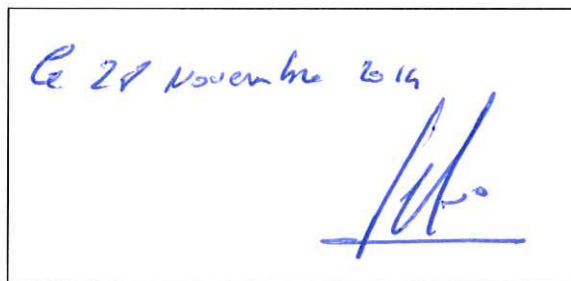 le 28 Novembre 2014